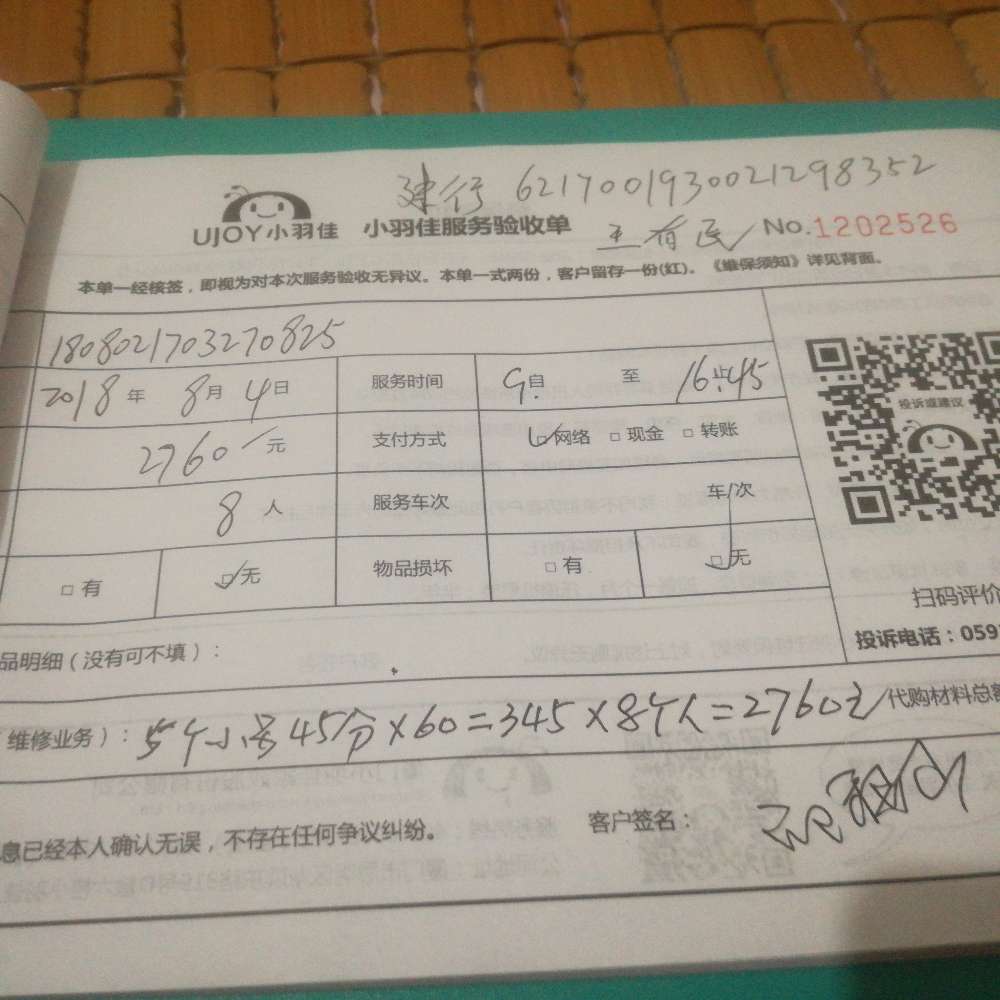 建行 6217001930021298352
UJOY小羽佳 小羽佳服务验收单 王有民 No.1202526
本单一经核签，即视为对本次服务验收无异议。本单一式两份，客户留存一份(红)。《维保须知》详见背面。
1808021703270825
2018年 8月 4日 服务时间 9自 至 16止45
2760元 支付方式 ☑网络 □现金 □转账
投诉或建议
8人 服务车次 车/次
□有 ☑无 物品损坏 □有 ☑无
扫码评价
投诉电话：059
品明细（没有可不填）：
维修业务）：5个小号45分×60=345×8个人=2760元 代购材料总
息已经本人确认无误，不存在任何争议纠纷。 客户签名：